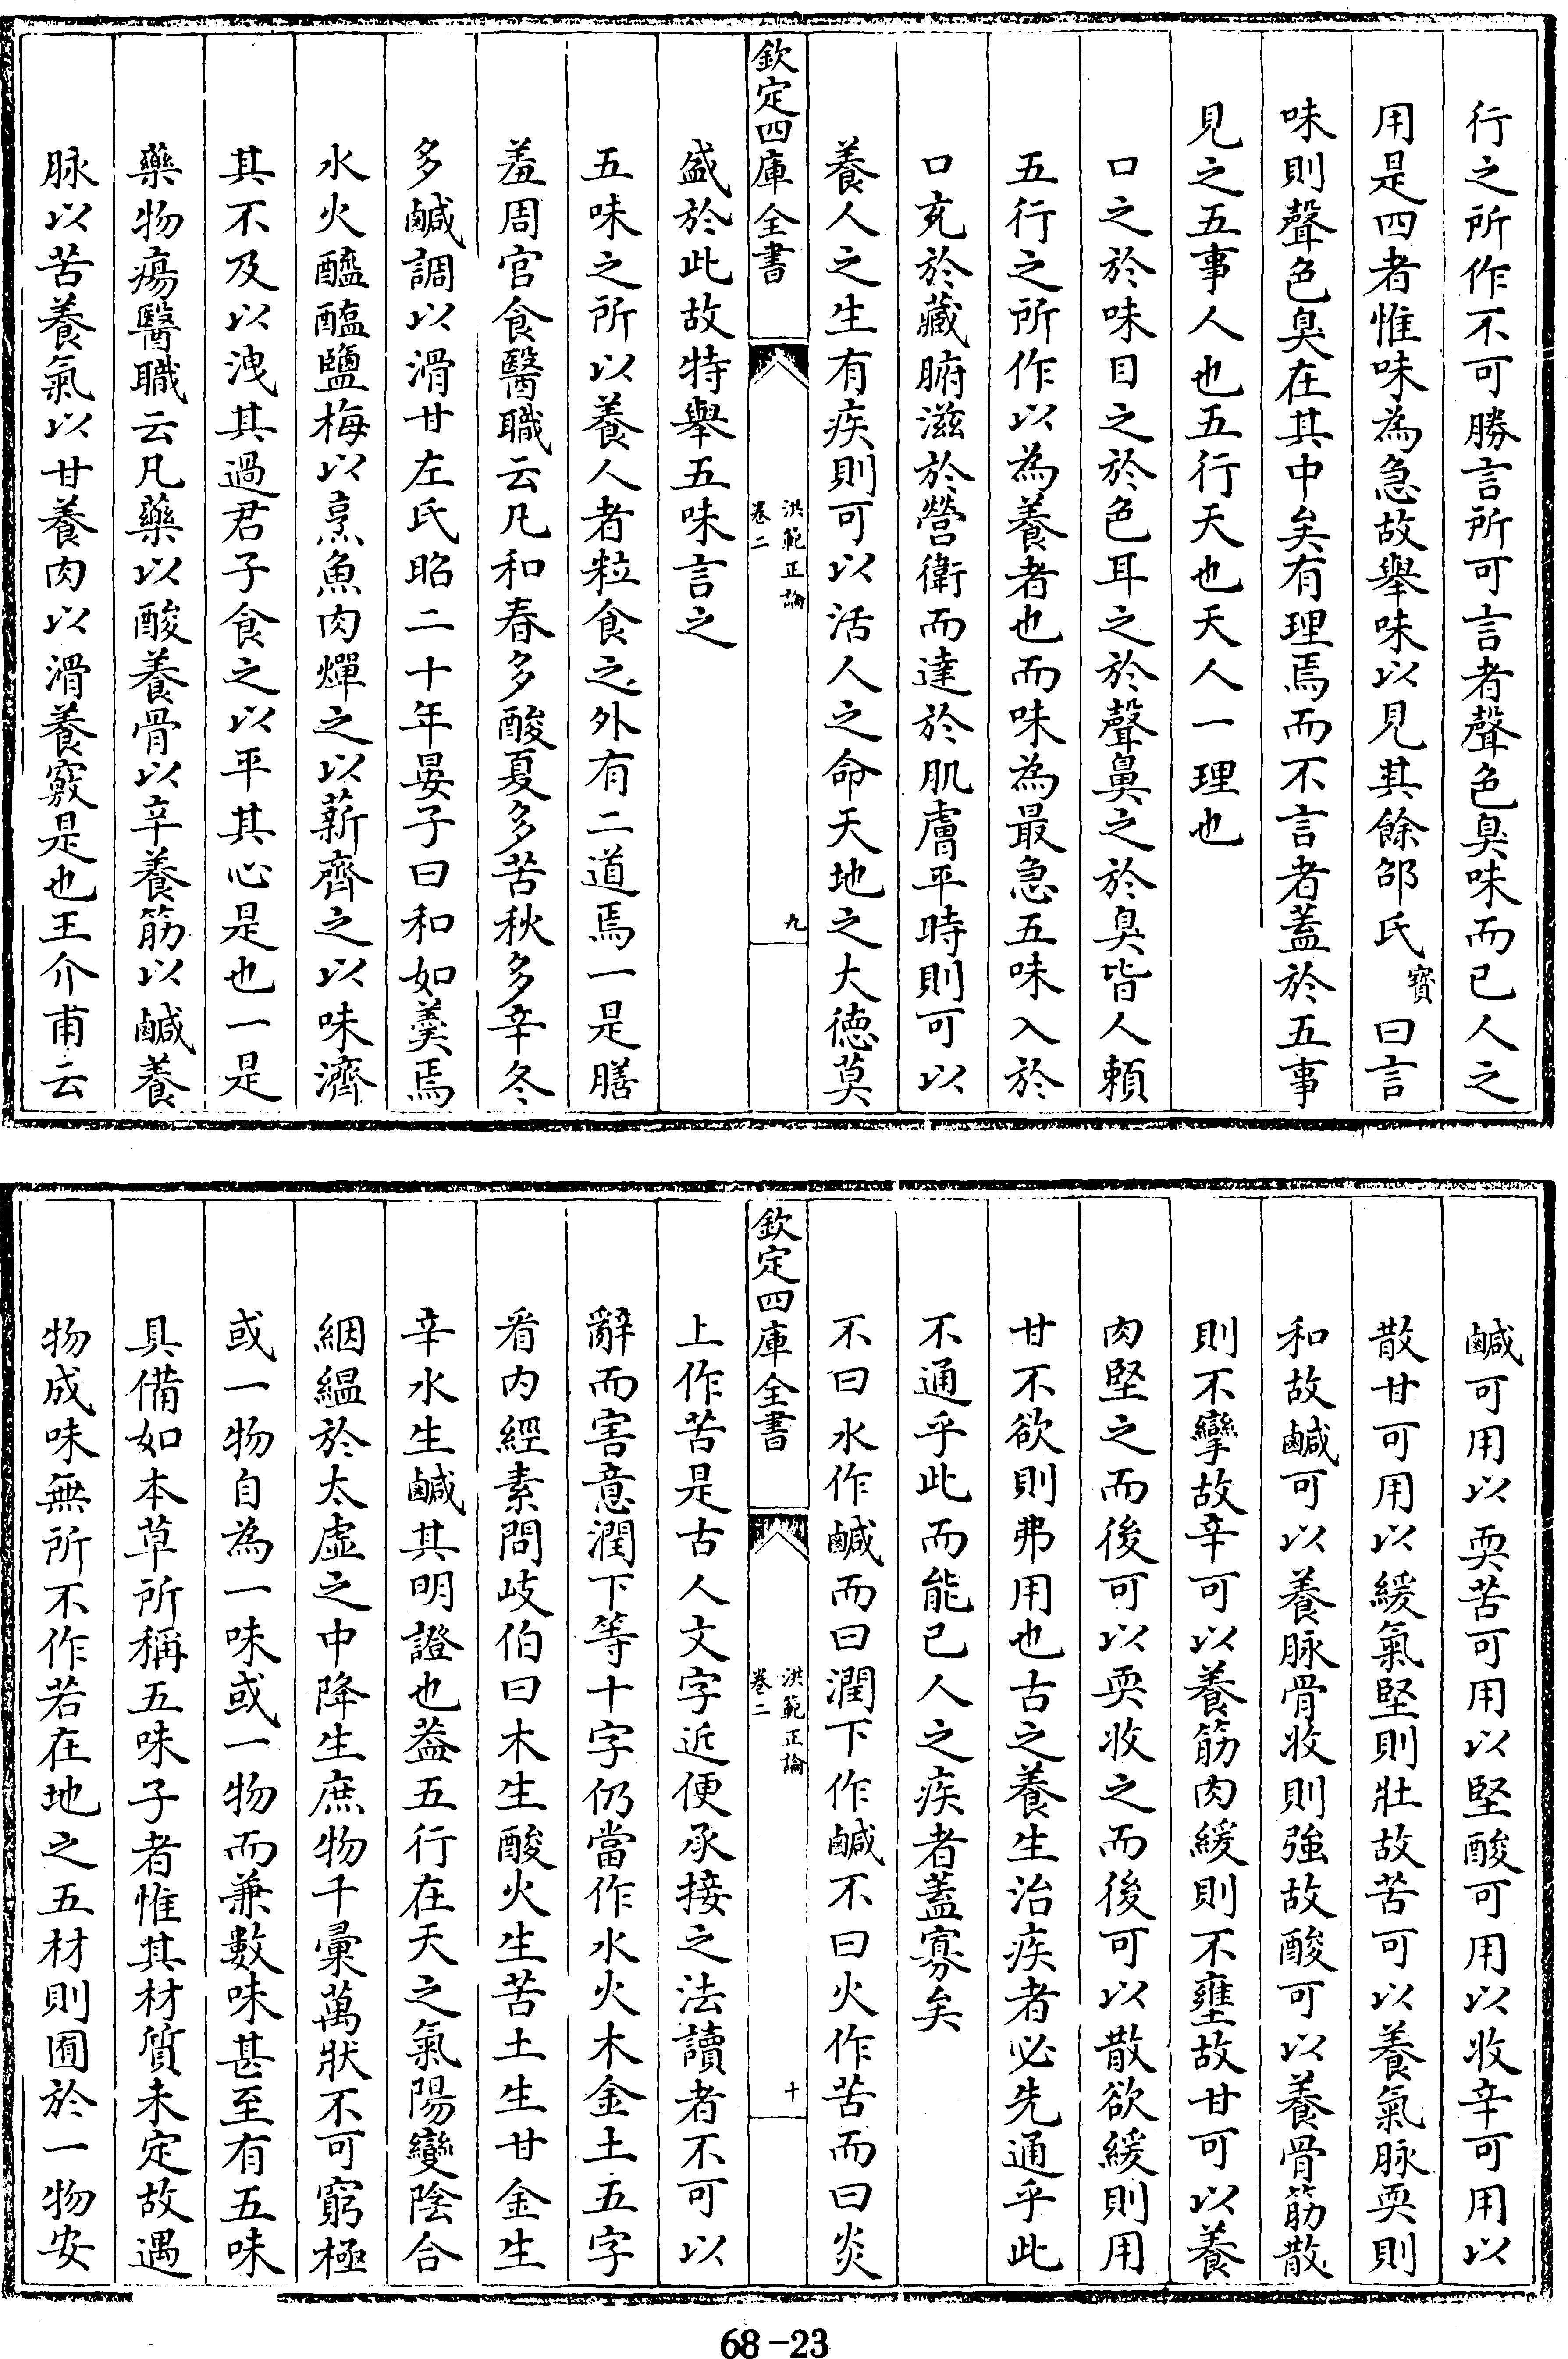 行之所作不可勝言所可言者聲色臭味而已人之
用是四者惟味為急故舉味以見其餘邵氏寶曰言
味則聲色臭在其中矣有理焉而不言者蓋於五事
見之五事人也五行天也天人一理也
口之於味目之於色耳之於聲鼻之於臭皆人頼
五行之所作以為養者也而味為最急五味入於
口充於藏腑滋於營衛而達於肌膚平時則可以
養人之生有疾則可以活人之命天地之大德莫
欽定四庫全書
洪範正論
卷二
九
盛於此故特舉五味言之
五味之所以養人者粒食之外有二道焉一是膳
羞周官食醫職云凡和春多酸夏多苦秋多辛冬
多鹹調以滑甘左氏昭二十年晏子曰和如羹焉
水火醯醢鹽梅以烹魚肉燀之以薪齊之以味濟
其不及以洩其過君子食之以平其心是也一是
藥物瘍醫職云凡藥以酸養骨以辛養筋以鹹養
脉以苦養氣以甘養肉以滑養竅是也王介甫云
鹹可用以耎苦可用以堅酸可用以收辛可用以
散甘可用以緩氣堅則壯故苦可以養氣脉耎則
和故鹹可以養脉骨收則強故酸可以養骨筋散
則不攣故辛可以養筋肉緩則不壅故甘可以養
肉堅之而後可以耎收之而後可以散欲緩則用
甘不欲則弗用也古之養生治疾者必先通乎此
不通乎此而能已人之疾者蓋寡矣
不曰水作鹹而曰潤下作鹹不曰火作苦而曰炎
欽定四庫全書
洪範正論
卷二
十
上作苦是古人文字近便承接之法讀者不可以
辭而害意潤下等十字仍當作水火木金土五字
看内經素問岐伯曰木生酸火生苦土生甘金生
辛水生鹹其明證也葢五行在天之氣陽變陰合
絪緼於太虚之中降生庶物千彚萬狀不可窮極
或一物自為一味或一物而兼數味甚至有五味
具備如本草所稱五味子者惟其材質未定故遇
物成味無所不作若在地之五材則囿於一物安
68-23